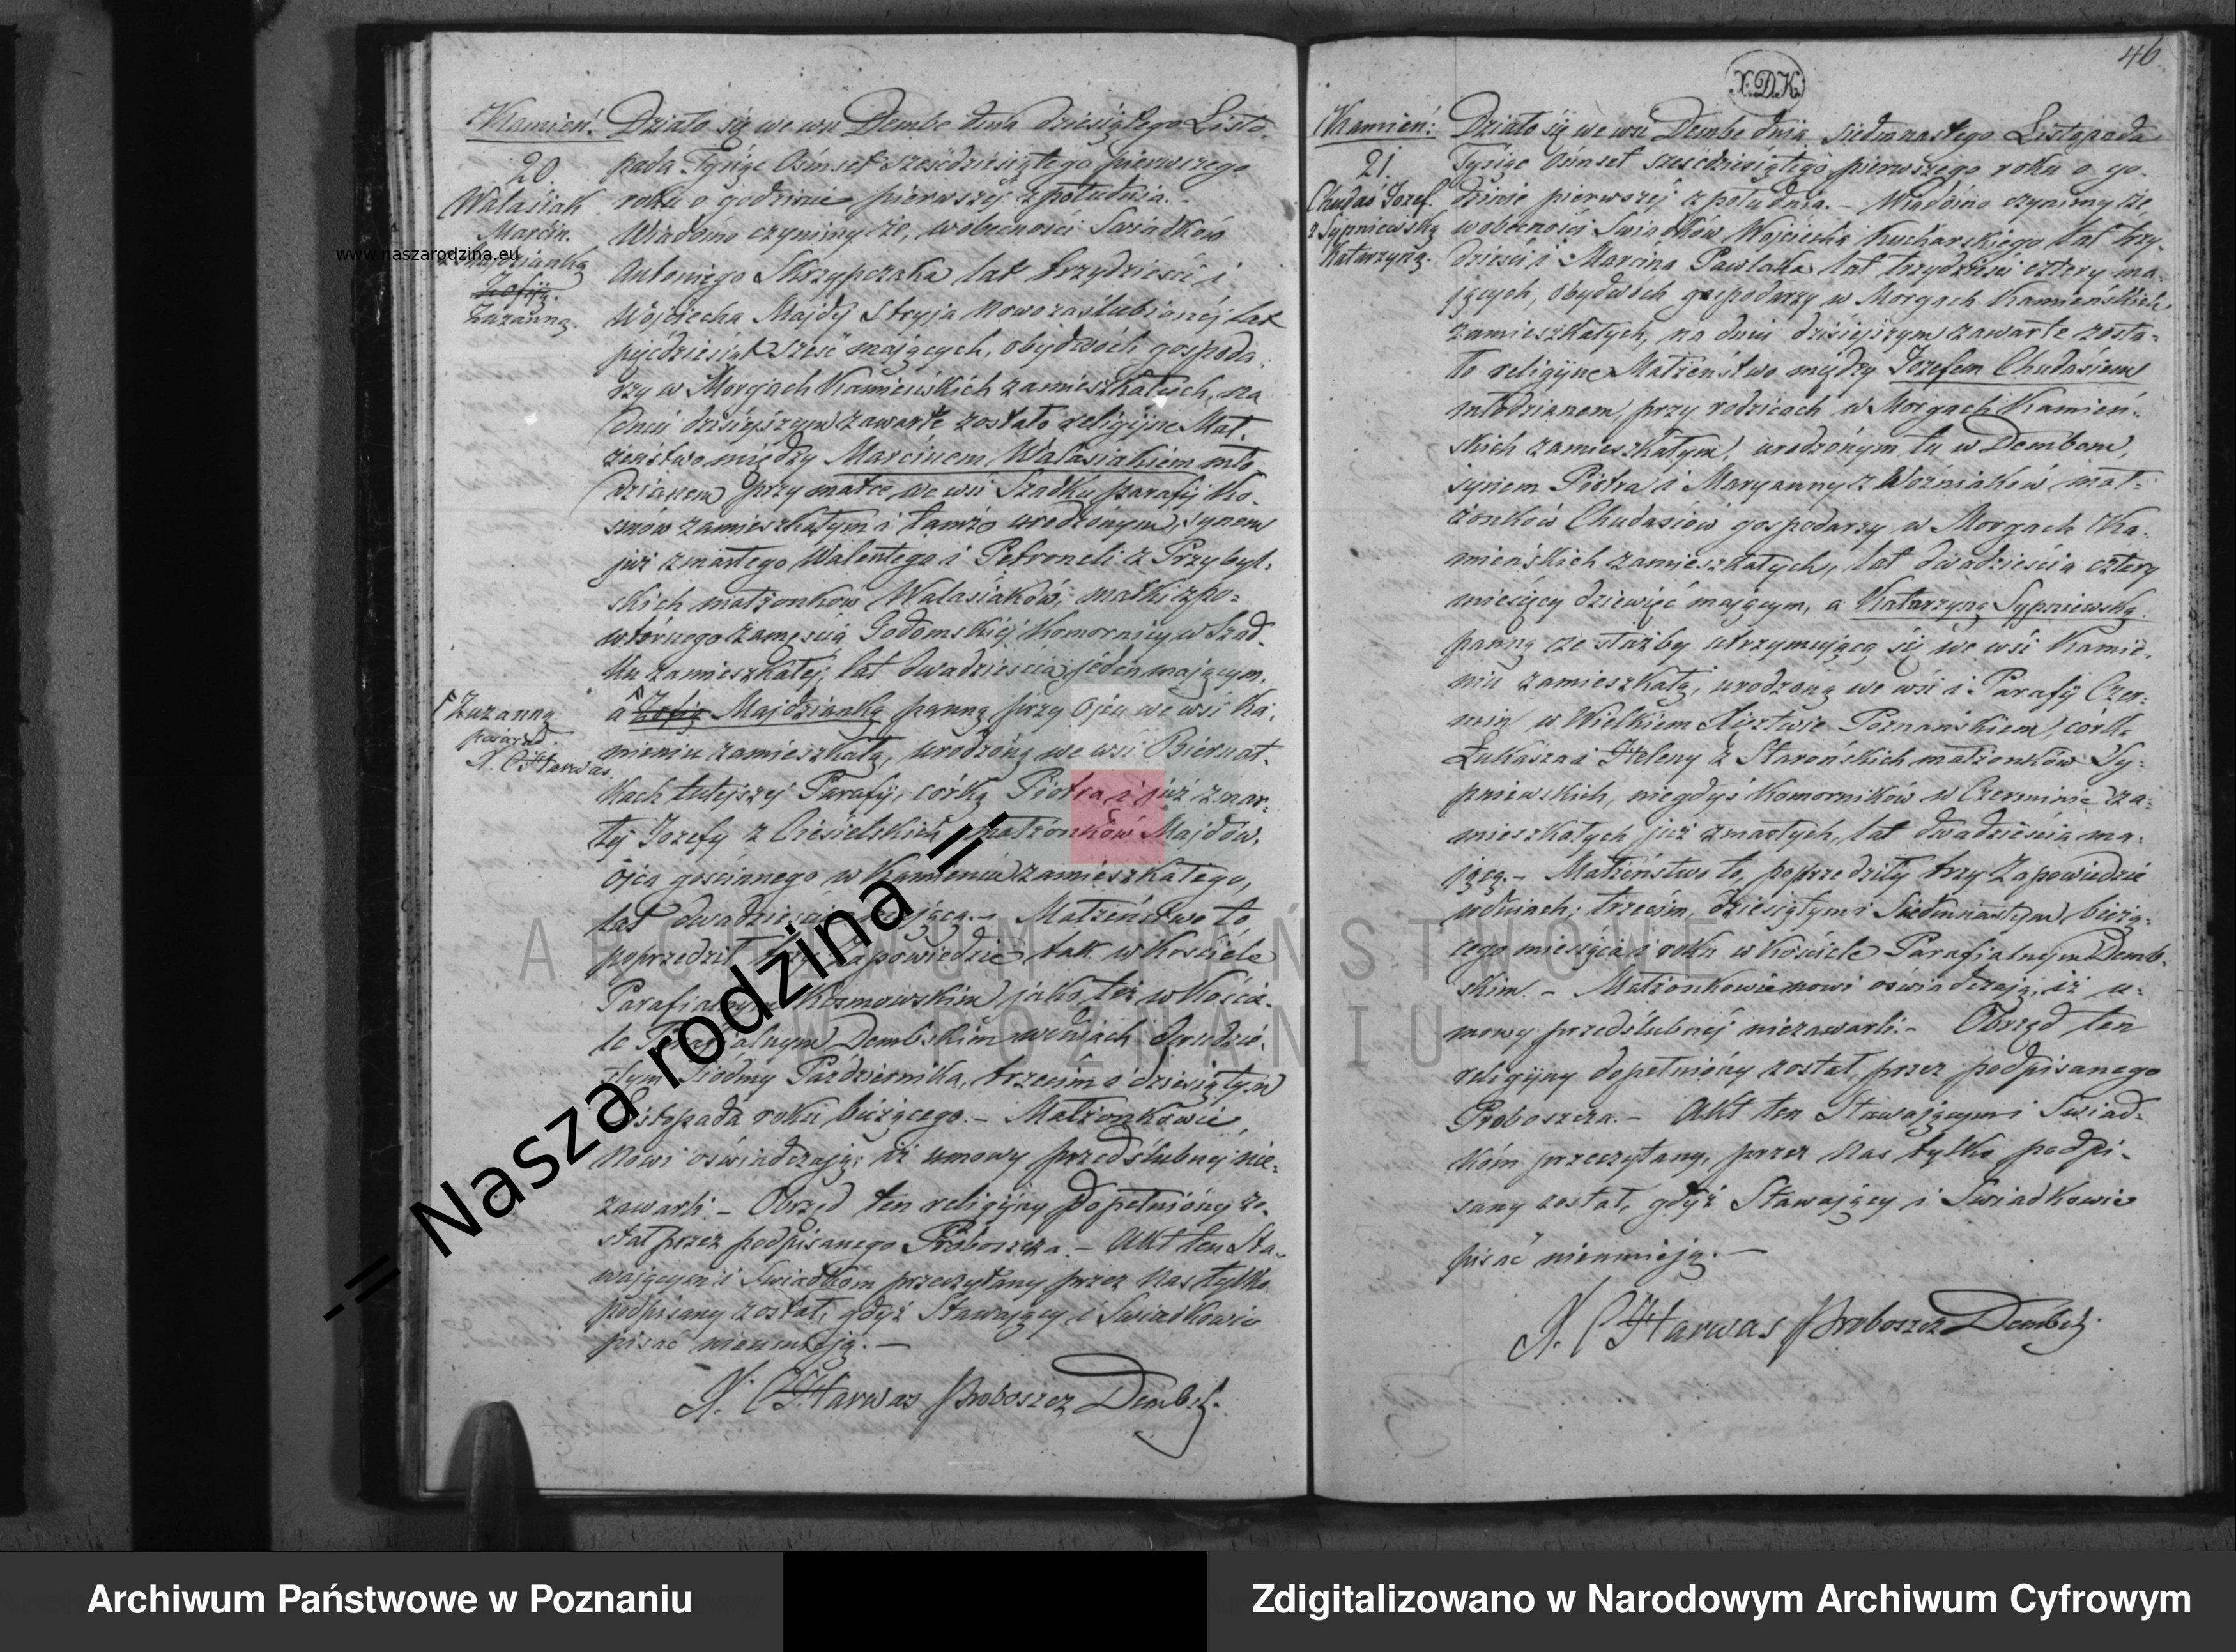 Kamień.
20.
Walasiak
Marcin.
z Majdzianką
Zofiją.
Zuzanną.
Działo się we wsi Dembe dnia dziesiątego Listo-
pada Tysiąc Ośmset sześćdziesiątego pierwszego
roku o godzinie pierwszej z południa. -
Wiadomo czynimy że, w obecności Swiadków
Antoniego Skrzypczaka lat trzydzieści i
Wojciecha Majdy Stryja nowozaślubionéj lat
pięćdziesiąt sześć mających, obydwóch gospoda-
rzy w Morgach Kamieńskich zamieszkałych, na
dniu dzisiejszym zawarte zostało religijne Mał-
żeństwo między Marcinem Walasiakiem mło-
dzianem przy matce we wsi Szadku parafij Ko-
smów zamieszkałym i tamże urodzonym, synem
już zmarłego Walentego i Petroneli z Przybyl-
skich małżonków Walasiaków, matki z po-
wtórnego zamęścia Godomskiéj Komornicy w Szad-
ku zamieszkałej, lat dwadzieścia jeden mającym,
a Zofią Majdzianką panną przy Ojcu we wsi Ka-
mieniu zamieszkałą, urodzoną we wsi Biernat-
kach tutejszej Parafij, córką Piotra i już zmar-
łej Jozefy z Ciesielskich małżonków Majdów,
Ojca gościnnego w Kamieniu zamieszkałego,
lat dwadzieścia mającą. - Małżeństwo to
poprzedził trzy Zapowiedzie tak w Kościele
Parafialnym Kosmowskim jako też w Koście-
le Parafialnym Dembskim w dniach dwudzie-
stym siódmy Pazdziernika, trzecim i dziesiątym
Listopada roku bieżącego. - Małżonkowie
nowi oświadczają, iż umowy przedślubnej nie-
zawarli. - Obrzęd ten religijny dopełniony zo-
stał przez podpisanego Proboszcza. - Akt ten Sta-
wającym i Swiadkom przeczytany przez Nas tylko
podpisany został, gdyż Stawający i Swiadkowie
pisać nieumieją. -
Zuzanną.
X. C Harwas
X. C Harwas Proboszcz Dembsk.
46
X.D.K.
Kamień:
21.
Chudaś Jozef.
z Sypniewską
Katarzyną.
Działo się we wsi Dembe dnia siedmnastego Listopada
Tysiąc Ośmset sześćdziesiątego pierwszego roku o go-
dzinie pierwszej z południa. - Wiadomo czynimy że,
w obecności Swiadków Wojciecha Kucharskiego lat trzy-
dzieści i Marcina Pawlaka lat trzydzieści cztery ma-
jących, obydwóch gospodarzy w Morgach Kamieńskich
zamieszkałych, na dniu dzisiejszym zawarte zosta-
ło religijne Małżeństwo między Jozefem Chudasiem
młodzianem, przy rodzicach w Morgach Kamień-
skich zamieszkałym, urodzonym tu w Dembem,
synem Piotra i Maryanny z Woźniaków mał-
żonków Chudasiów gospodarzy w Morgach Ka-
mieńskich zamieszkałych, lat dwadzieścia cztery
miesięcy dziewięć mającym, a Katarzyną Sypniewską
panną ze służby utrzymującą się we wsi Kamie-
niu zamieszkałą, urodzoną we wsi i Parafij Czer-
min w Wielkiem Xięztwie Poznańskiem, córk.
Łukasza i Heleny z Starońskich małżonków Sy-
pniewskich, niegdyś Komorników w Czerminie za-
mieszkałych już zmarłych, lat dwadzieścia ma-
jącą. - Małżeństwo to, poprzedziły trzy Zapowiedzie
w dniach; trzecim, dziesiątym i Siedmnastym bieżą-
cego miesiąca i roku w Kościele Parafialnym Demb-
skim. - Małżonkowie nowi oświadczają, iż u-
mowy przedślubnéj niezawarli. - Obrzęd ten
religijny dopełniony został, przez podpisanego
Proboszcza. - Akt ten Stawającym i Swiad-
kom przeczytany, przez Nas tylko podpi-
sany został, gdyż Stawający i Swiadkowie
pisać nieumieją. -
X. C Harwas Proboszcz Dembsk.
www.naszarodzina.eu
-= Nasza rodzina =-
ARCHIWUM PAŃSTWOWE
W POZNANIU
Archiwum Państwowe w Poznaniu
Zdigitalizowano w Narodowym Archiwum Cyfrowym